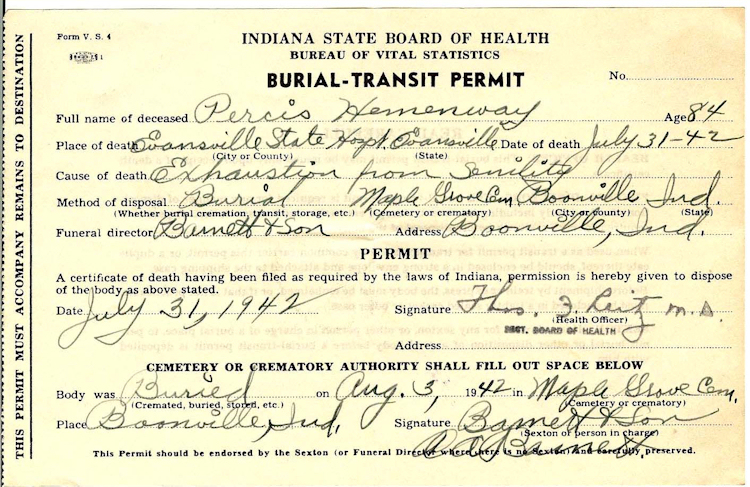 THIS PERMIT MUST ACCOMPANY REMAINS TO DESTINATION
Form V. S. 4
INDIANA STATE BOARD OF HEALTH
BUREAU OF VITAL STATISTICS
BURIAL-TRANSIT PERMIT
No.
Full name of deceased Percis Hemenway Age 84
Place of death Evansville State Hospt. Evansville Date of death July 31-42
(City or County) (State)
Cause of death Exhaustion from senility
Method of disposal Burial Maple Grove Cem Boonville, Ind.
(Whether burial cremation, transit, storage, etc.) (Cemetery or crematory) (City or county) (State)
Funeral director Barnett & Son Address Boonville, Ind.
PERMIT
A certificate of death having been filed as required by the laws of Indiana, permission is hereby given to dispose
of the body as above stated.
Date July 31, 1942 Signature Thos. J. Reitz M.D.
(Health Officer)
SECT. BOARD OF HEALTH
Address
CEMETERY OR CREMATORY AUTHORITY SHALL FILL OUT SPACE BELOW
Body was Buried on Aug. 3, 1942 in Maple Grove Cem,
(Cremated, buried, stored, etc.) (Cemetery or crematory)
Place Boonville, Ind. Signature Barnett & Son
(Sexton or person in charge)
Barnett
This Permit should be endorsed by the Sexton (or Funeral Director where there is no Sexton) and carefully preserved.